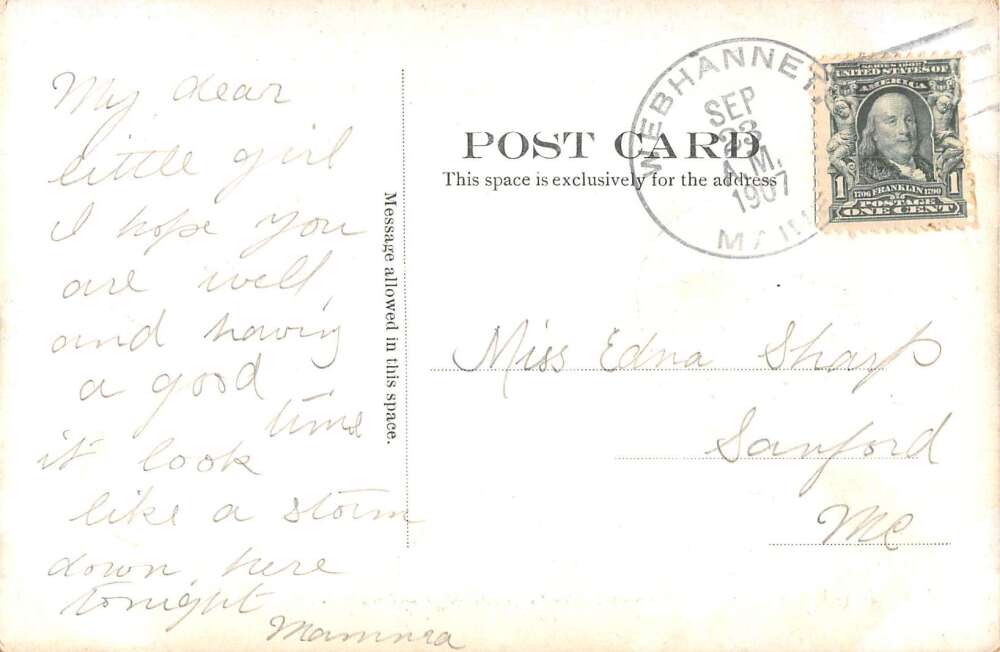 My dear
little girl
I hope you
are well
and having
a good
time
it look
like a storm
down here
tonight
Mamma
Message allowed in this space.
POST CARD
This space is exclusively for the address
WEBHANNER
SEP
23
A.M.
1907
MAINE
SERIES 1902
UNITED STATES OF
AMERICA
1 1706 FRANKLIN 1790 1
POSTAGE
ONE CENT
Miss Edna Sharp
Sanford
Me